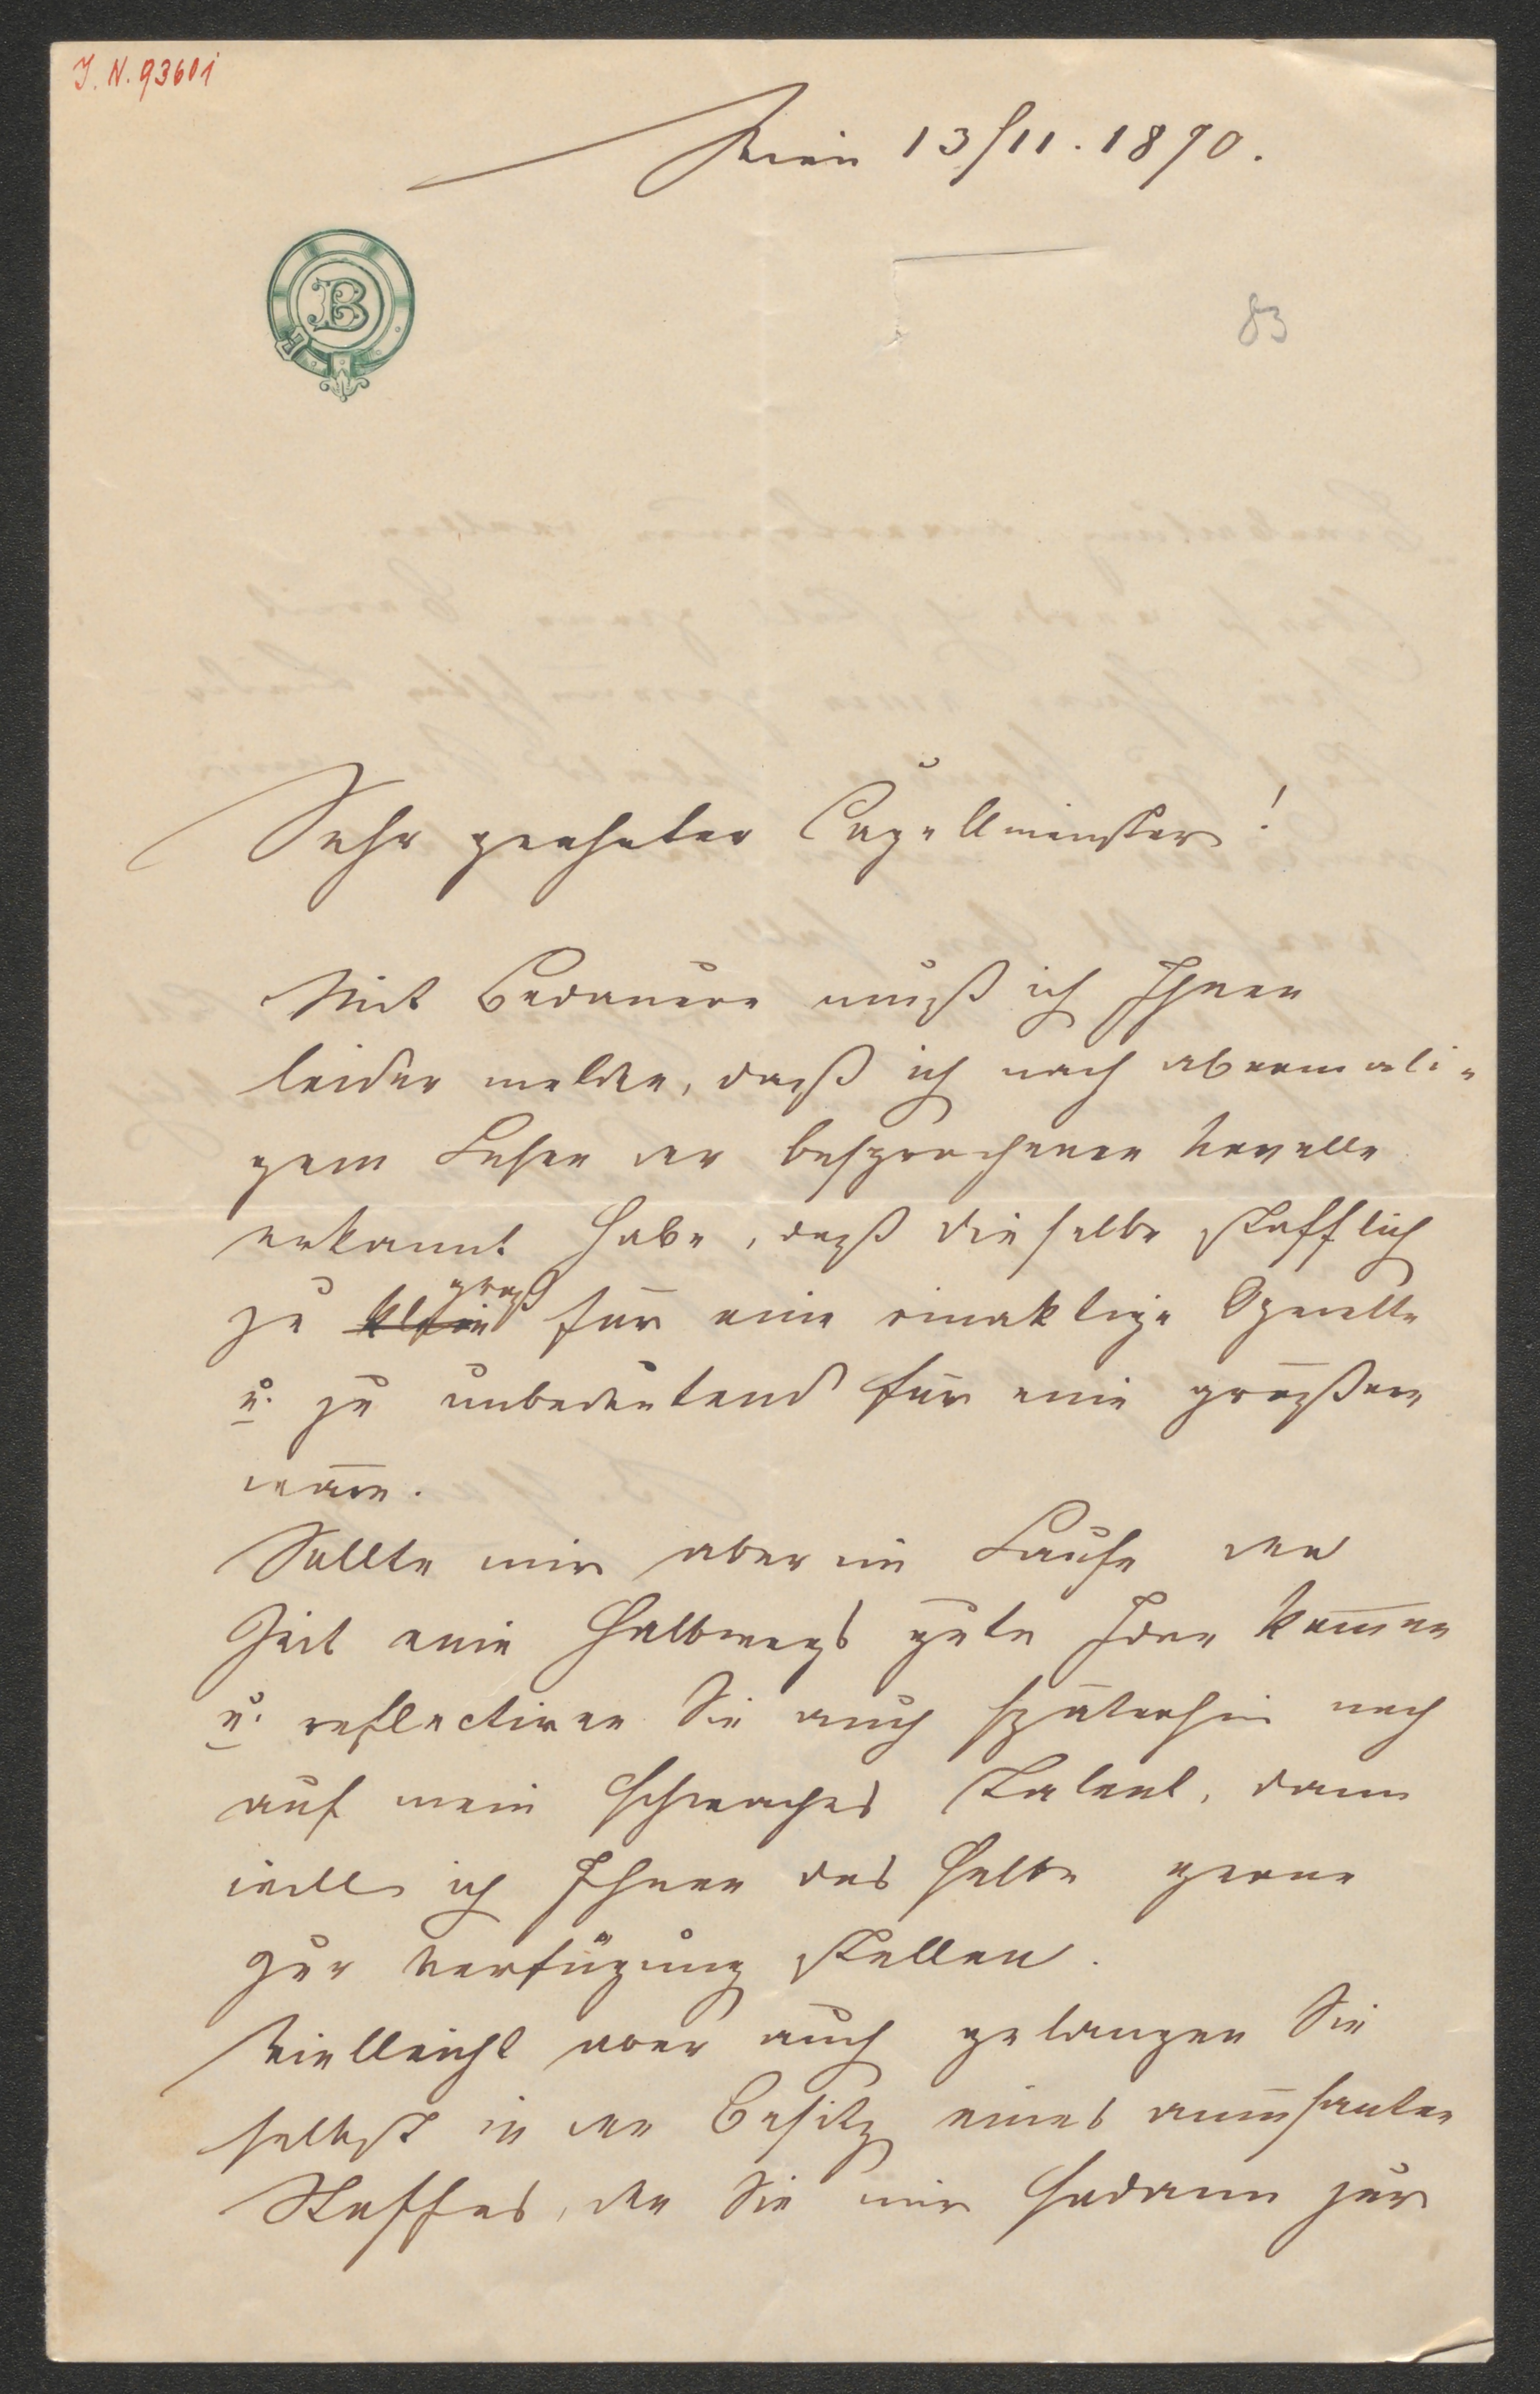 J. N. 93601
Wien 13/11. 1890.
B
83
Sehr geehrter Capellmeister!
Mit Bedauern muß ich Ihnen
leider melden, daß ich nach abermali-
gem Lesen der besprochenen Novelle
erkannt habe, daß dieselbe stofflich
zu klein groß für eine einaktige Operette
u. zu unbedeutend für eine größere
wäre.
Sollte mir aber im Laufe der
Zeit eine halbwegs gute Idee kommen
u. reflectiren Sie auch späterhin noch
auf mein schwaches Talent, dann
will ich Ihnen dasselbe gerne
zur Verfügung stellen.
Vielleicht aber auch gelangen Sie
selbst in den Besitz eines amüsanten
Stoffes, den Sie mir sodann zur